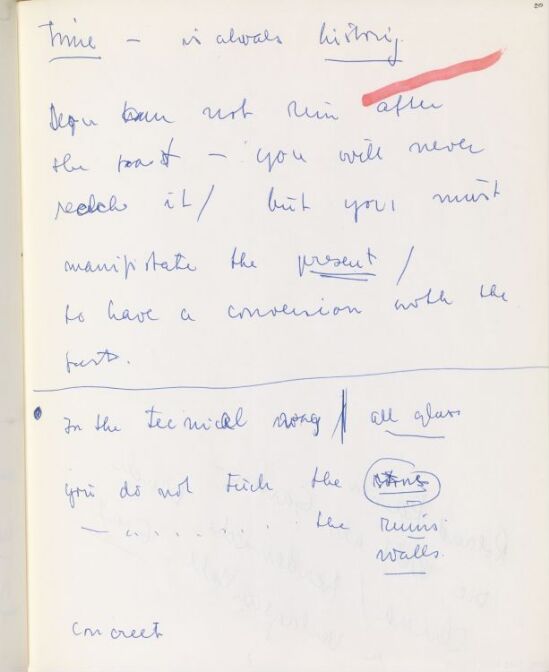 20
Time – is always history.
can not run after
the past – you will never
reach it / but you must
manifistate the present /
to have a conversion with the
past.
In the tecnical wway // all glass
you do not tuch the stons
– . . . . . . . . the ruins.
walls.
concreet